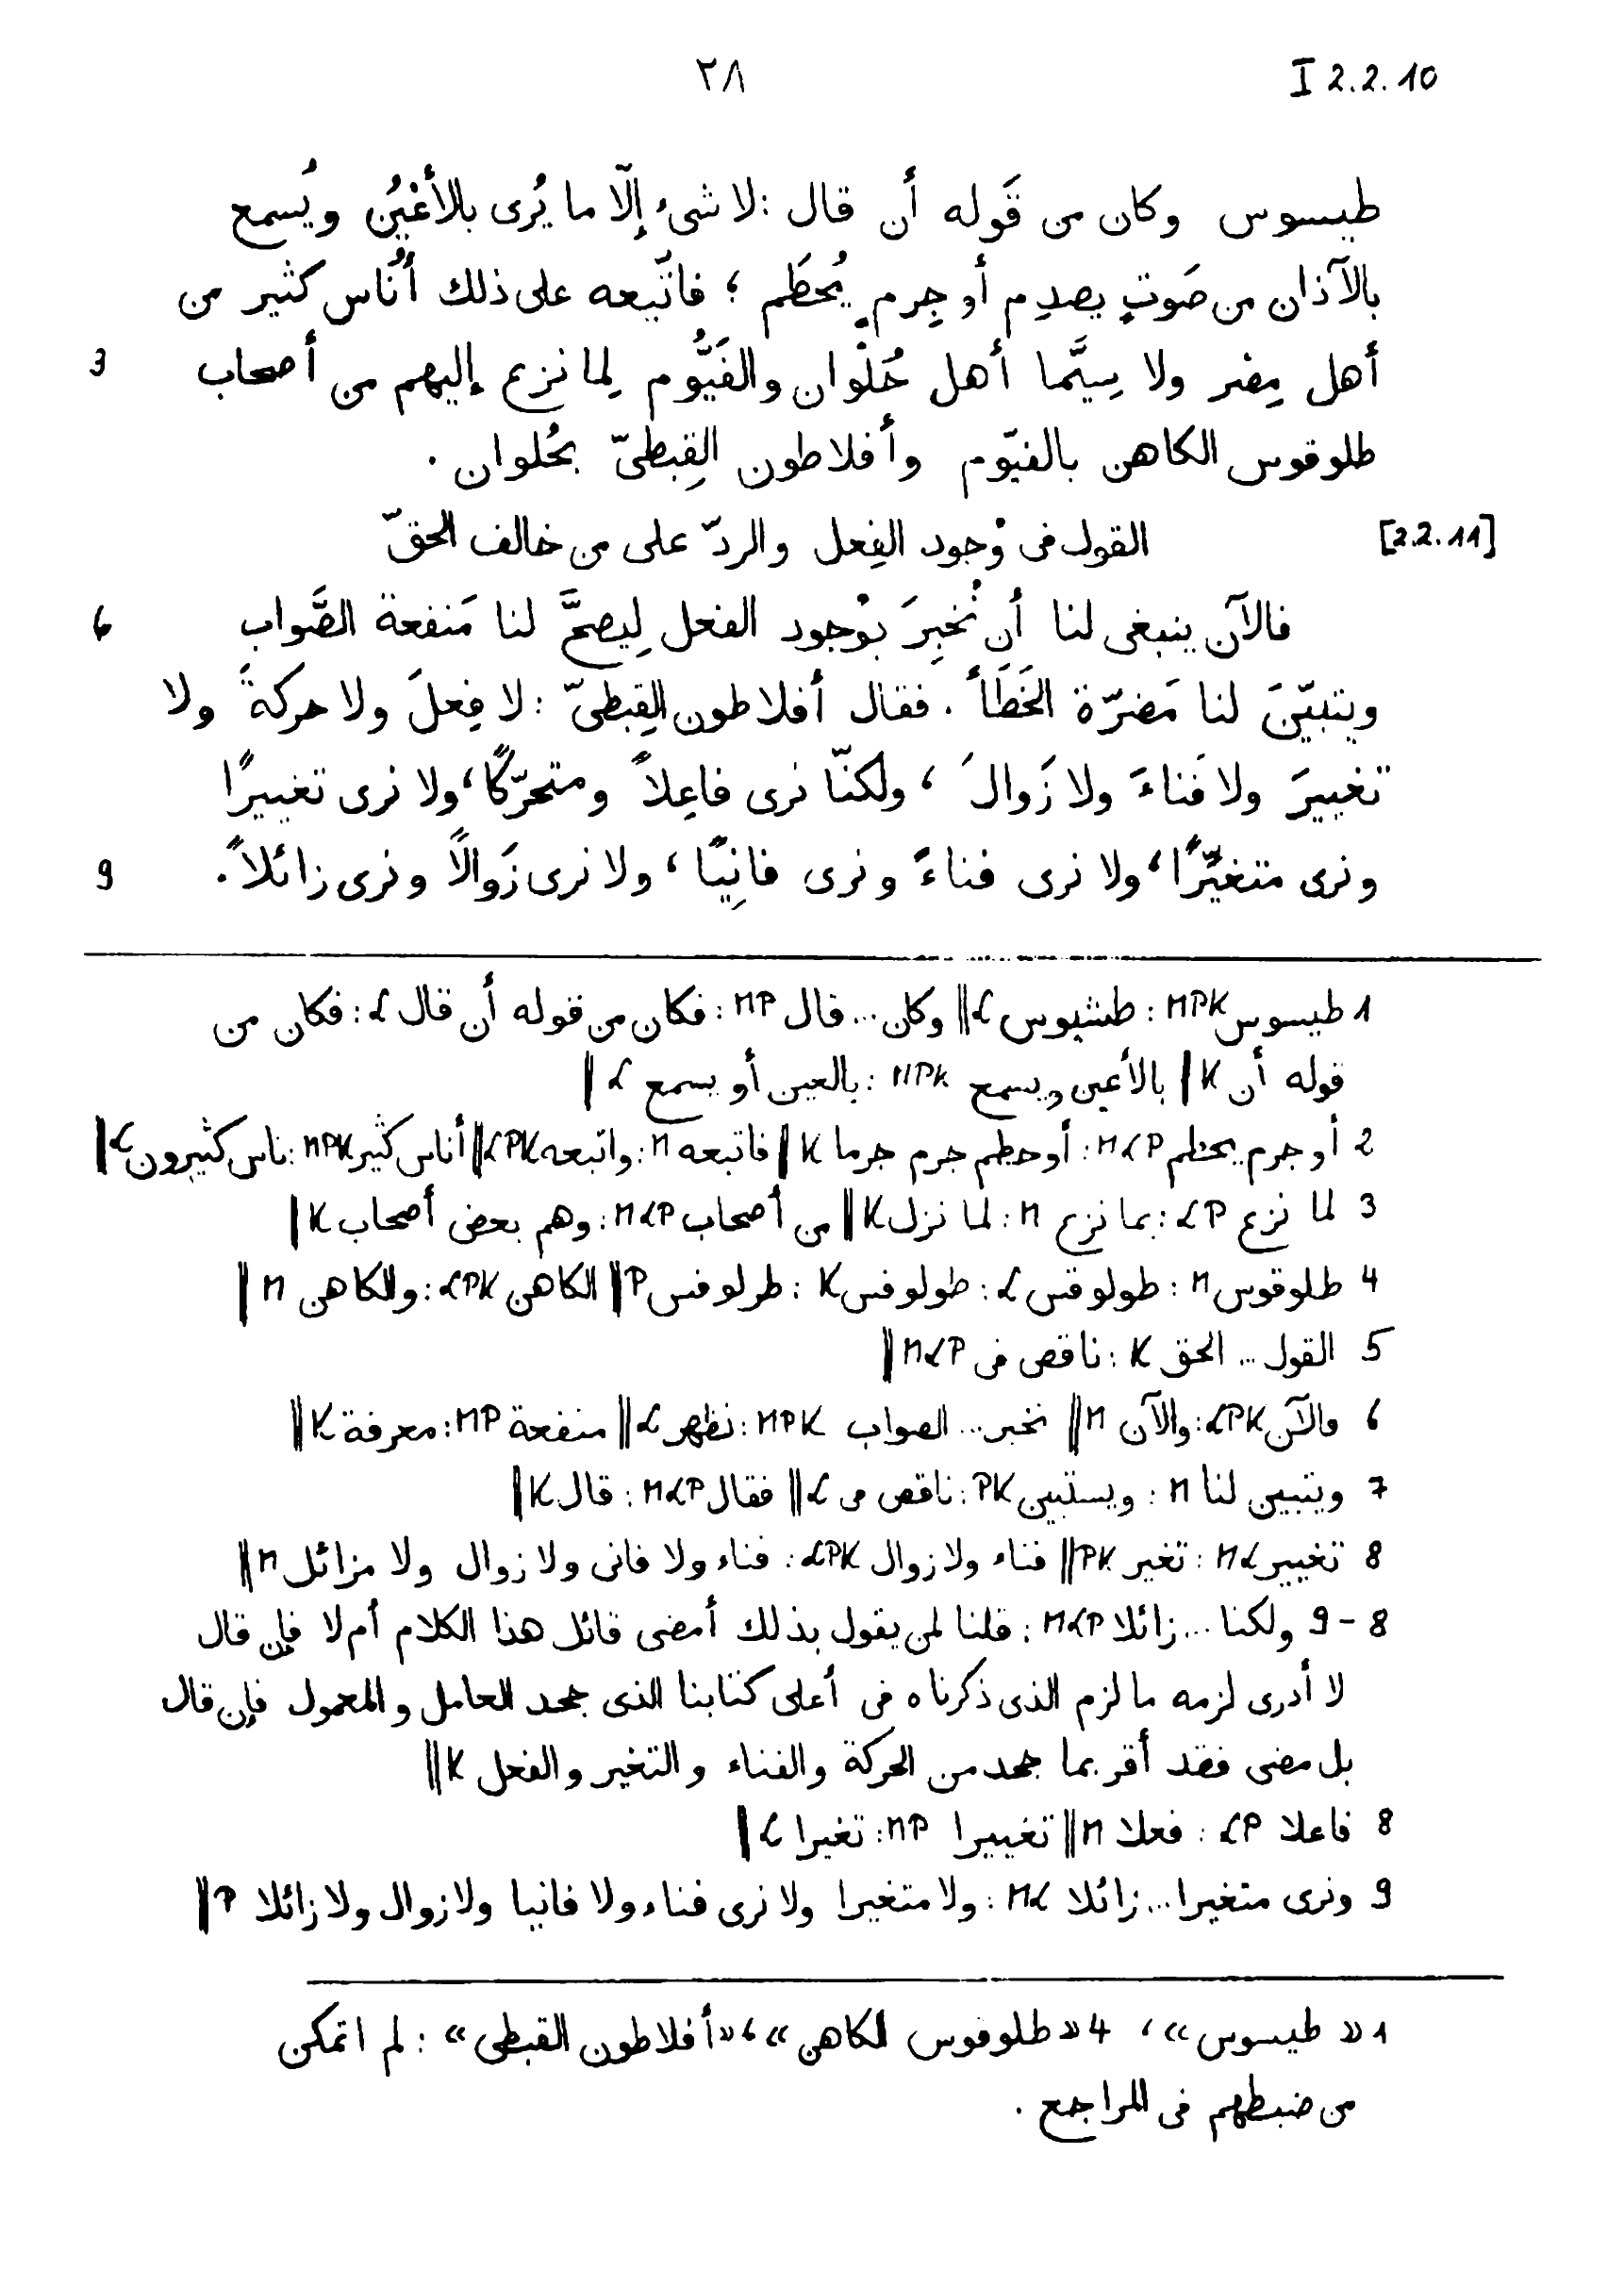 I 2.2.10
٢٨
طيسوس وكان من قَوله أن قال : لا شىء إلّا ما يُرى بالأَعْيُن ويُسمع
بالآذان من صَوتٍ يصدِم أو جِرمٍ يُحطَم ؛ فاتّبعه على ذلك أُنَاس كثير من
3 أهل مِصْر ولا سِيَّما أهل حُلْوان والفَيُّوم لِما نزع إليهم من أصحاب
طلوقوس الكاهن بالفيّوم وأفلاطون القِبطىّ بحُلوان .
[2.2.11] القول فى وُجود الفِعل والردّ على من خالف الحقّ
6 فالآن ينبغى لنا أن نُخبِرَ بوُجود الفعل لِيصحَّ لنا مَنفعة الصَّواب
ويتبيّنَ لنا مَضرّة الخَطَأ . فقال أفلاطون القِبطىّ : لا فِعلَ ولا حركةَ ولا
تغييرَ ولا فَناءَ ولا زَوالَ ، ولكنّا نرى فاعِلاً ومتحرّكًا ، ولا نرى تغييرًا
9 ونرى متغيّرًا ، ولا نرى فناءً ونرى فانِيًا ، ولا نرى زَوالًا ونرى زائلاً .
1 طيسوس MPK : طشيوس L || وكان ... قال MP : فكان من قوله أن قال L : فكان من
قوله أن K || بالأعين ويسمع MPK : بالعين أو يسمع L ||
2 أو جرم يحطم MLP : أو حطم جرم جرما K || فاتبعه M : واتبعه LPK || أناس كثير MPK : ناس كثيرون L ||
3 لما نزع LP : بما نزع M : لما نزل K || من أصحاب MLP : وهم بعض أصحاب K ||
4 طلوقوس M : طولوقس L : طولوفس K : طرلوفس P || الكاهن LPK : والكاهن M ||
5 القول ... الحق K : ناقص فى MLP ||
6 فالآن LPK : والآن M || نخبر ... الصواب MPK : نظهر L || منفعة MP : معرفة K ||
7 ويتبين لنا M : ويستبين PK : ناقص فى L || فقال MLP : قال K ||
8 تغيير ML : تغير PK || فناء ولا زوال LPK : فناء ولا فانى ولا زوال ولا مزائل M ||
8 - 9 ولكنا ... زائلا MLP : قلنا لمن يقول بذلك أمضى قائل هذا الكلام أم لا فإن قال
لا أدرى لزمه ما لزم الذى ذكرناه فى أعلى كتابنا الذى جحد العامل والمعمول فإن قال
بل مضى فقد أقر بما جحد من الحركة والفناء والتغير والفعل K ||
8 فاعلا LP : فعلا M || تغييرا MP : تغيرا L ||
9 ونرى متغيرا ... زائلا ML : ولا متغيرا ولا نرى فناء ولا فانيا ولا زوال ولا زائلا P ||
1 « طيسوس » ، 4 « طلوقوس الكاهن » ، « أفلاطون القبطى » : لم اتمكن
من ضبطهم فى المراجع .